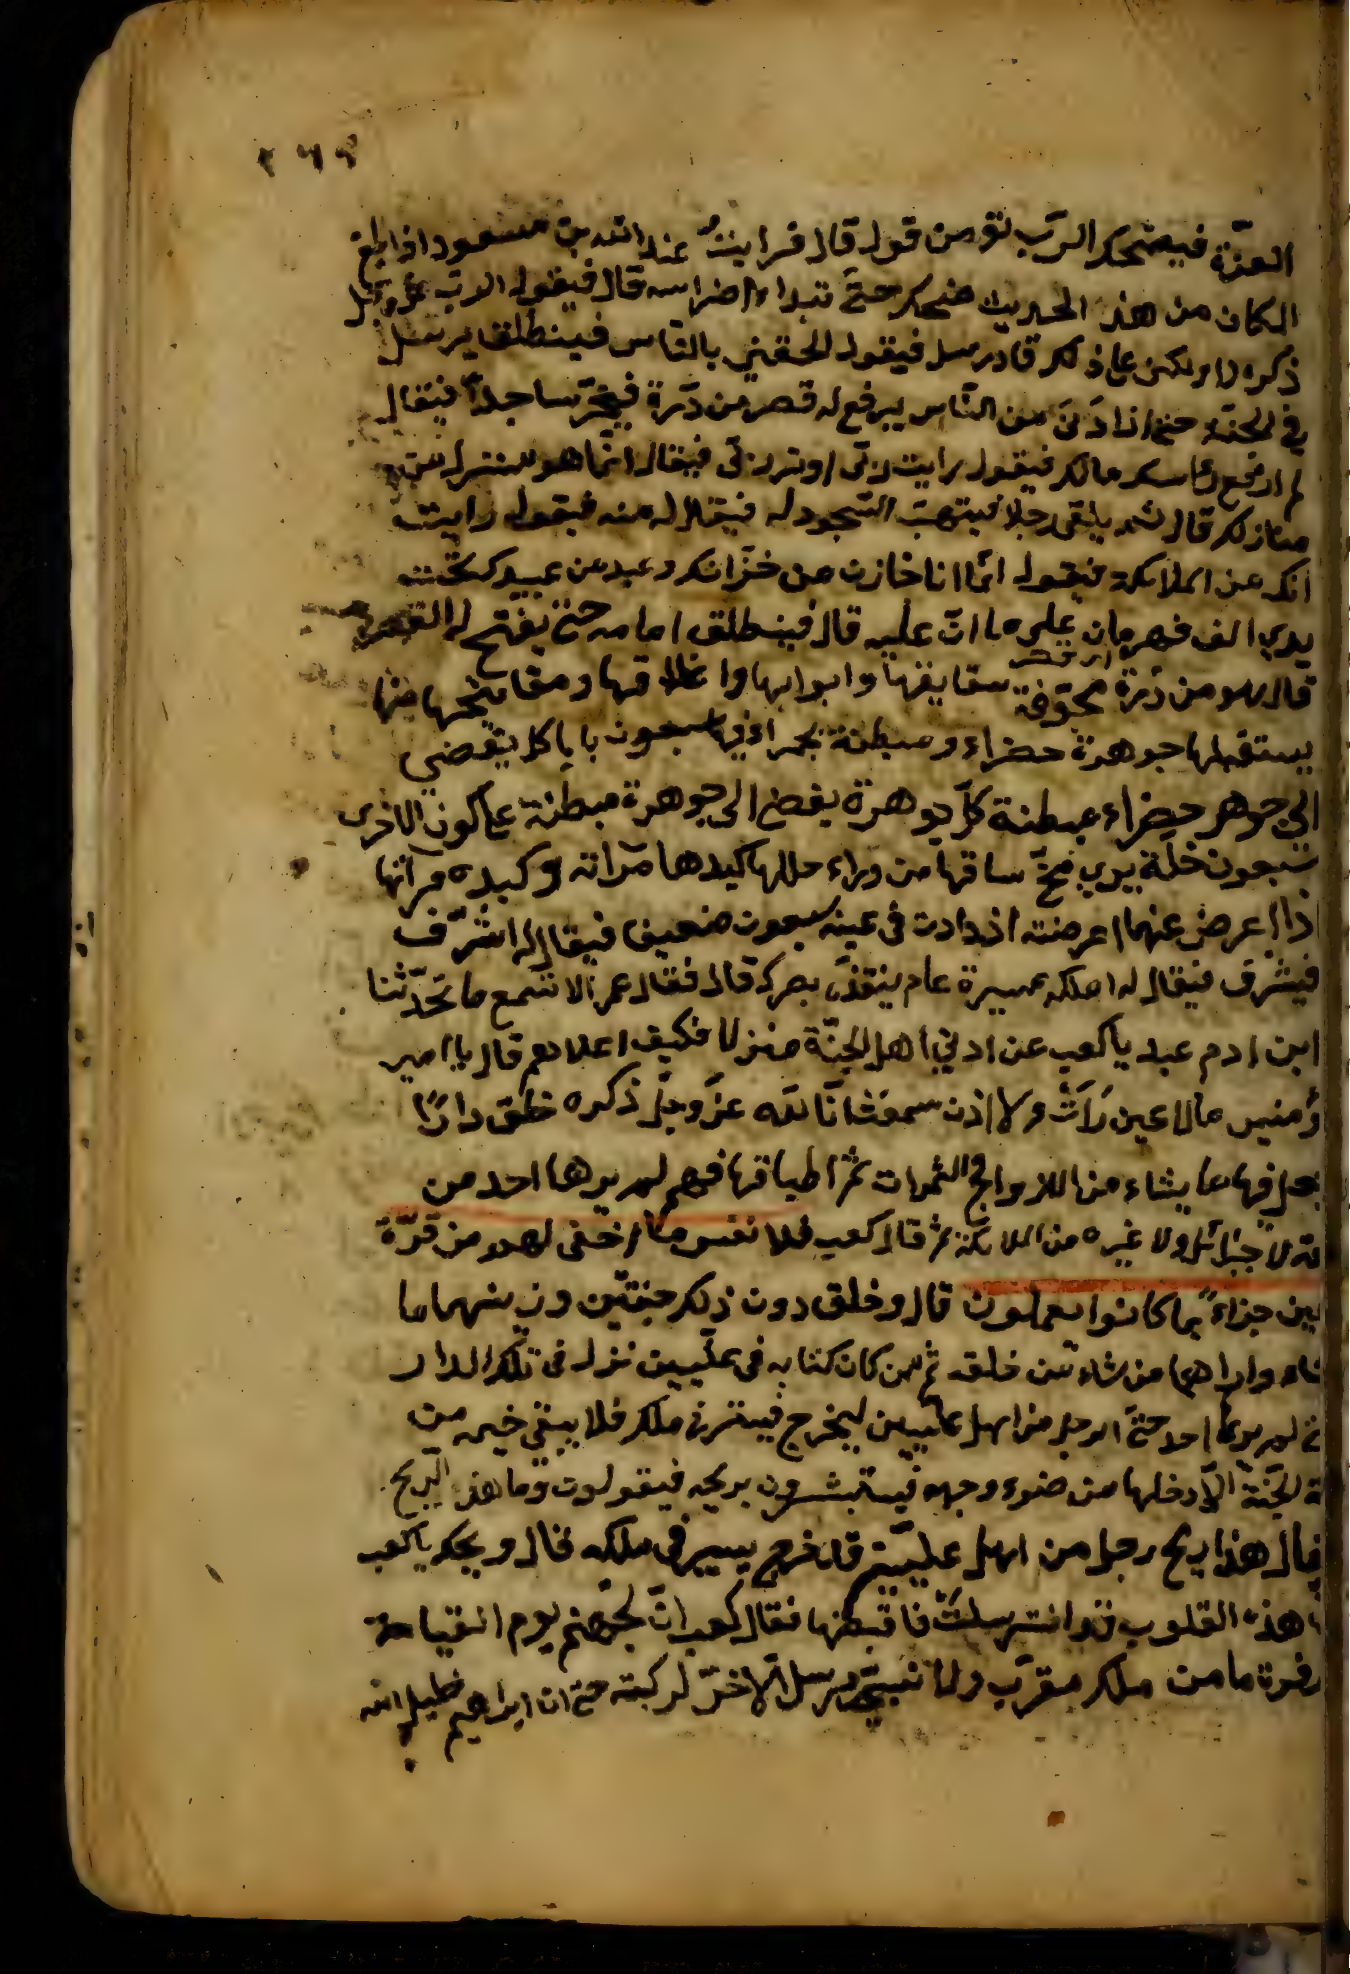 ٢٦٩
العزة فيضحك الرب تع من قوله قال فرايت عبد الله بن مسعود اذا بلغ
المكان من هذا الحديث ضحك حتى تبدا اضراسه قال فيقول الرب عز وجل
ذكره لا ولكني على ذلك قادر سل فيقول الحقني بالناس فينطلق يرمل
في الجنة حتى اذا دنى من الناس يرفع له قصر من درة فيخر ساجدا فيقال
له ارفع راسك مالك فيقول رايت ربي او تراى لي فيقال انما هو منزل من
منازلك قال ثم يلقى رجلا فيتهيب السجود له فيقال له مه فيقول رايت
انك من الملائكة فيقول انما انا خازن من خزانك وعبد من عبيدك تحت
يدي الف قهرمان على ما انا عليه قال فينطلق امامه حتى يفتح له القصر
قال وهو من درة مجوفة سقايفها وابوابها واغلاقها ومفاتيحها منها
يستقبلها جوهرة خضراء مبطنة بحمراء فيها سبعون بابا كل يفضي
الى جوهر خضراء مبطنة كل جوهرة يفضي الى جوهرة مبطنة على لون الاخرى
سبعون حلة يرى مخ ساقها من وراء حللها كبدها مرآته وكبده مرآتها
اذا اعرض عنها اعرضته ازدادت في عينه سبعون ضعفا فيقال له اشرف
فيشرف فيقال له ملكك مسيرة عام ينفذ بصرك قال فقال عمر الا تسمع ما تحدثنا
ابن ام عبد يا كعب عن ادنى اهل الجنة منزلا فكيف اعلاهم قال يا امير
ؤمنين مالا عين رأت ولا اذن سمعت ان الله عز وجل ذكره خلق دارا
جعل فيها ما يشاء من الازواج والثمرات ثم اطباقها فهم لم يرها احد من
لا جبرائل ولا غيره من الملائكة ثم قال كعب فلا نفس ما اخفى لهم من قرة
عين جزاء بما كانوا يعملون قال وخلق دون ذلك جنتين وزينهما بما
شاء واراهما من شاء من خلقه ثم من كان كتابه في عليين نزل في تلك الدار
لم يرها احد حتى ان الرجل من اهل عليين ليخرج فيسير في ملكه فلا يبقى خيمة من
الجنة الا دخلها من ضوء وجهه فيستبشرون بريحه فيقولون وما هذا الريح
فقال هذا ريح رجل من اهل عليين قد خرج يسير في ملكه فقال ويحك يا كعب
هذه القلوب قد استرسلت فاقبضها فقال كعب ان لجهنم يوم القيامة
زفرة ما من ملك مقرب ولا نبي مرسل الا خر لركبته حتى ان ابراهيم خليل الله